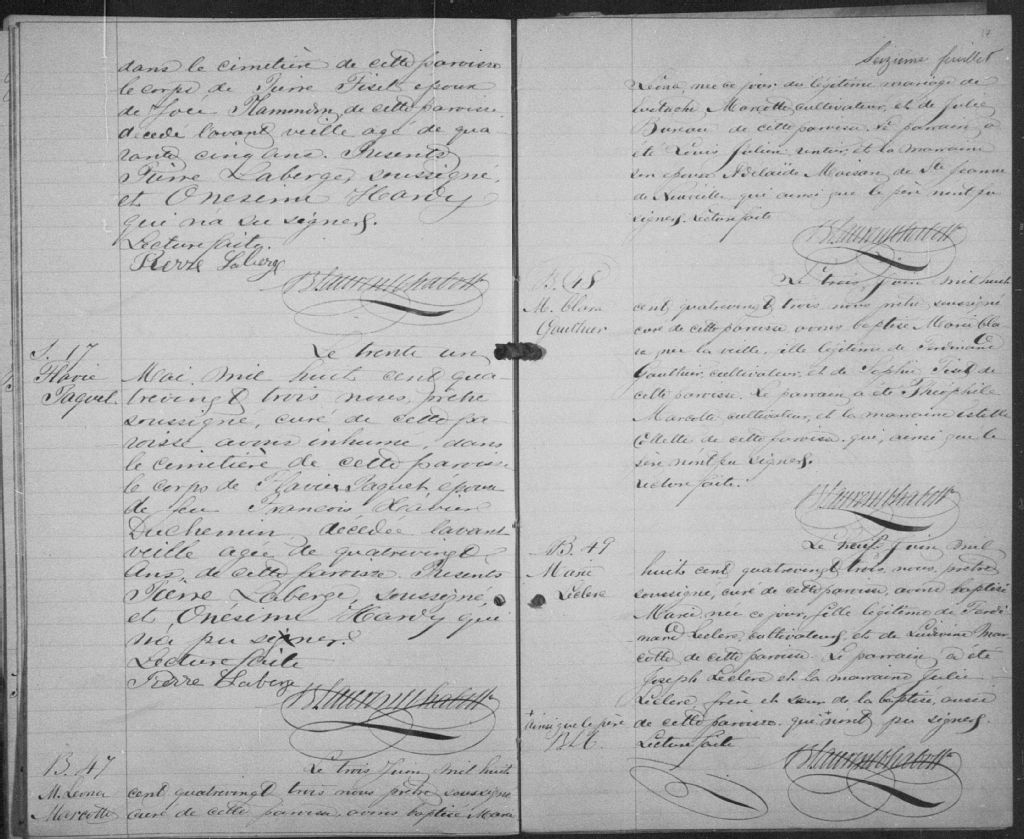 dans le cimetière de cette paroisse
le corps de Pierre Fiset epoux
de Joci Hammon de cette paroisse
décédé lavant veille age de qua
rante cinq ans. Presents
Pierre Laberge, soussigné,
et Onesime Hardy
qui na su signer.
Lecture faite.
Pierre Laberge
S. 17
Flavie
Paquet
Le trente un
Mai mil huit cent qua
trevingt trois nous, prêtre
soussigné, curé de cette pa
roisse avons inhumé, dans
le cimetière de cette paroisse
le corps de Flavie Paquet, epouse
de feu François Xavier
Duchemin décédée lavant
veille agée de quatrevingt
ans, de cette paroisse. Presents
Pierre Laberge, soussigné,
et Onésime Hardy qui
na pu signer.
Lecture faite
Pierre Laberge
B. 47
M. Leona
Marcotte
Le trois Juin mil huit
cent quatrevingt trois nous prêtre soussigné
curé de cette paroisse avons baptisé Marie
17
Seizieme feuillet
Léona, née ce jour du légitime mariage de
Eustache Marcotte cultivateur, et de Julie
Bureau de cette paroisse. Le parrain a
été Louis Julien rentier, et la marraine
son epouse Adelaïde Maisan de Ste Jeanne
de Neuville, qui ainsi que le père nont pu
signer. Lecture faite
B. 48
M. Clara
Gauthier
Le trois Juin mil huit
cent quatrevingt trois nous prêtre soussigné
curé de cette paroisse avons baptisé Marie Cla
ra née la veille, fille légitime de Ferdinand
Gauthier, cultivateur, et de Sophie Fiset de
cette paroisse. Le parrain a été Théophile
Marcotte cultivateur, et la marraine Estelle
de cette paroisse qui, ainsi que le
père nont pu signer.
Lecture faite.
B. 49
Marie
Leclerc
Le neuf Juin mil
huit cent quatrevingt trois, nous, prêtre
soussigné, curé de cette paroisse, avons baptisé
Marie, née ce jour, fille légitime de Ferdi
nand Leclerc, cultivateur, et de Ludivine Mar
cotte de cette paroisse. Le parrain a été
Joseph Leclerc et la marraine Julie
Leclerc, frère et sœur de la baptisé, aussi
+ainsi que le père
de cette paroisse qui + nont pu signer.
Lecture faite